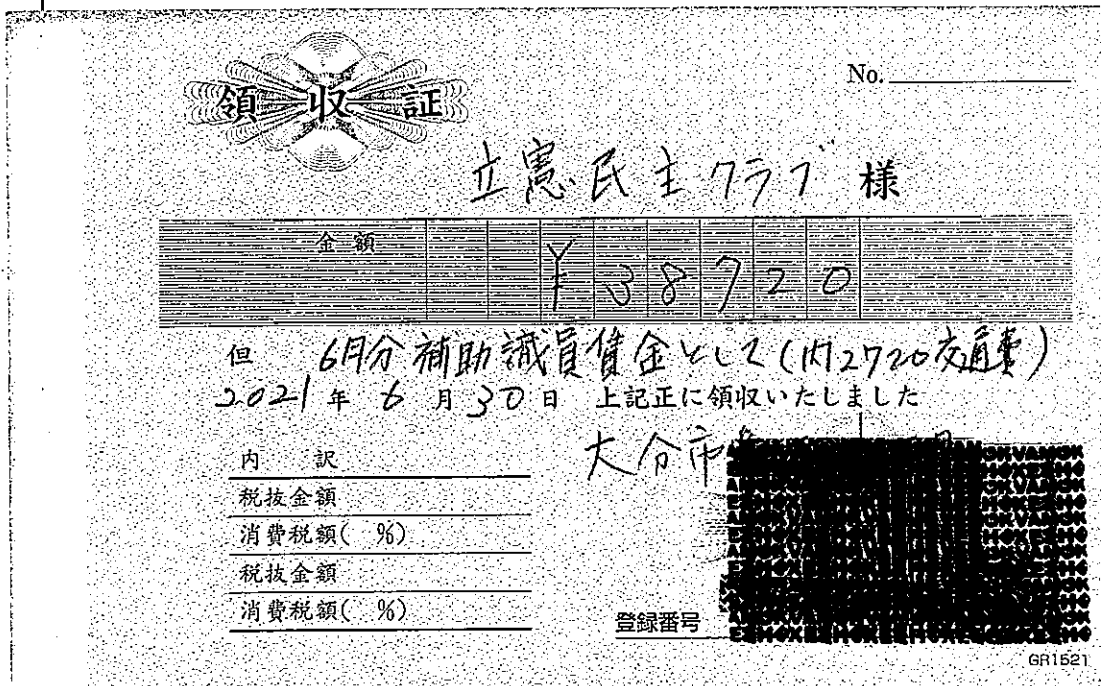 領収証
No.
立憲民主クラブ 様
金額
¥38720
但 6月分補助職員賃金として(内2720交通費)
2021年6月30日 上記正に領収いたしました
大分市
内 訳
税抜金額
消費税額( %)
税抜金額
消費税額( %)
登録番号
GR1521